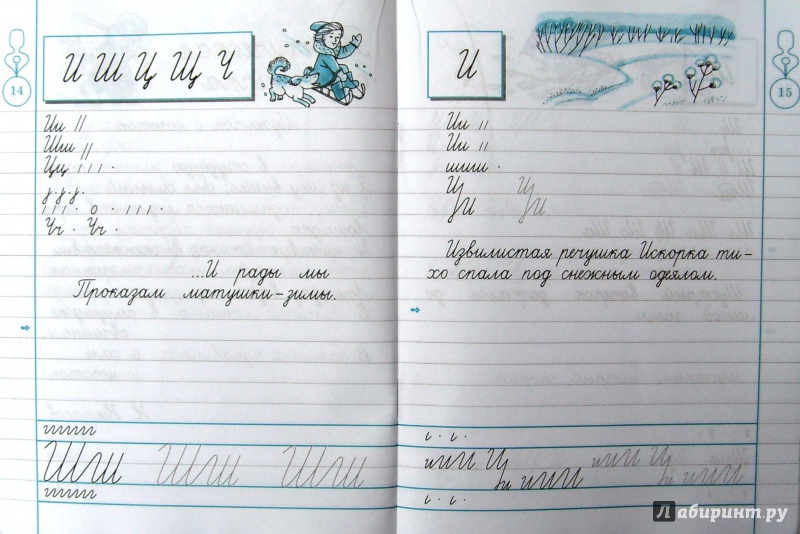 14
И Ш Ц Щ Ч
Ии
Шш
Цц
Чч. Чч.
...И рады мы
Проказам матушки-зимы.
Шш Шш Шш
15
И
Ии
Ии
шиш.
Ц Ц
Извилистая речушка Искорка ти-
хо спала под снежным одеялом.
Лабиринт.ру